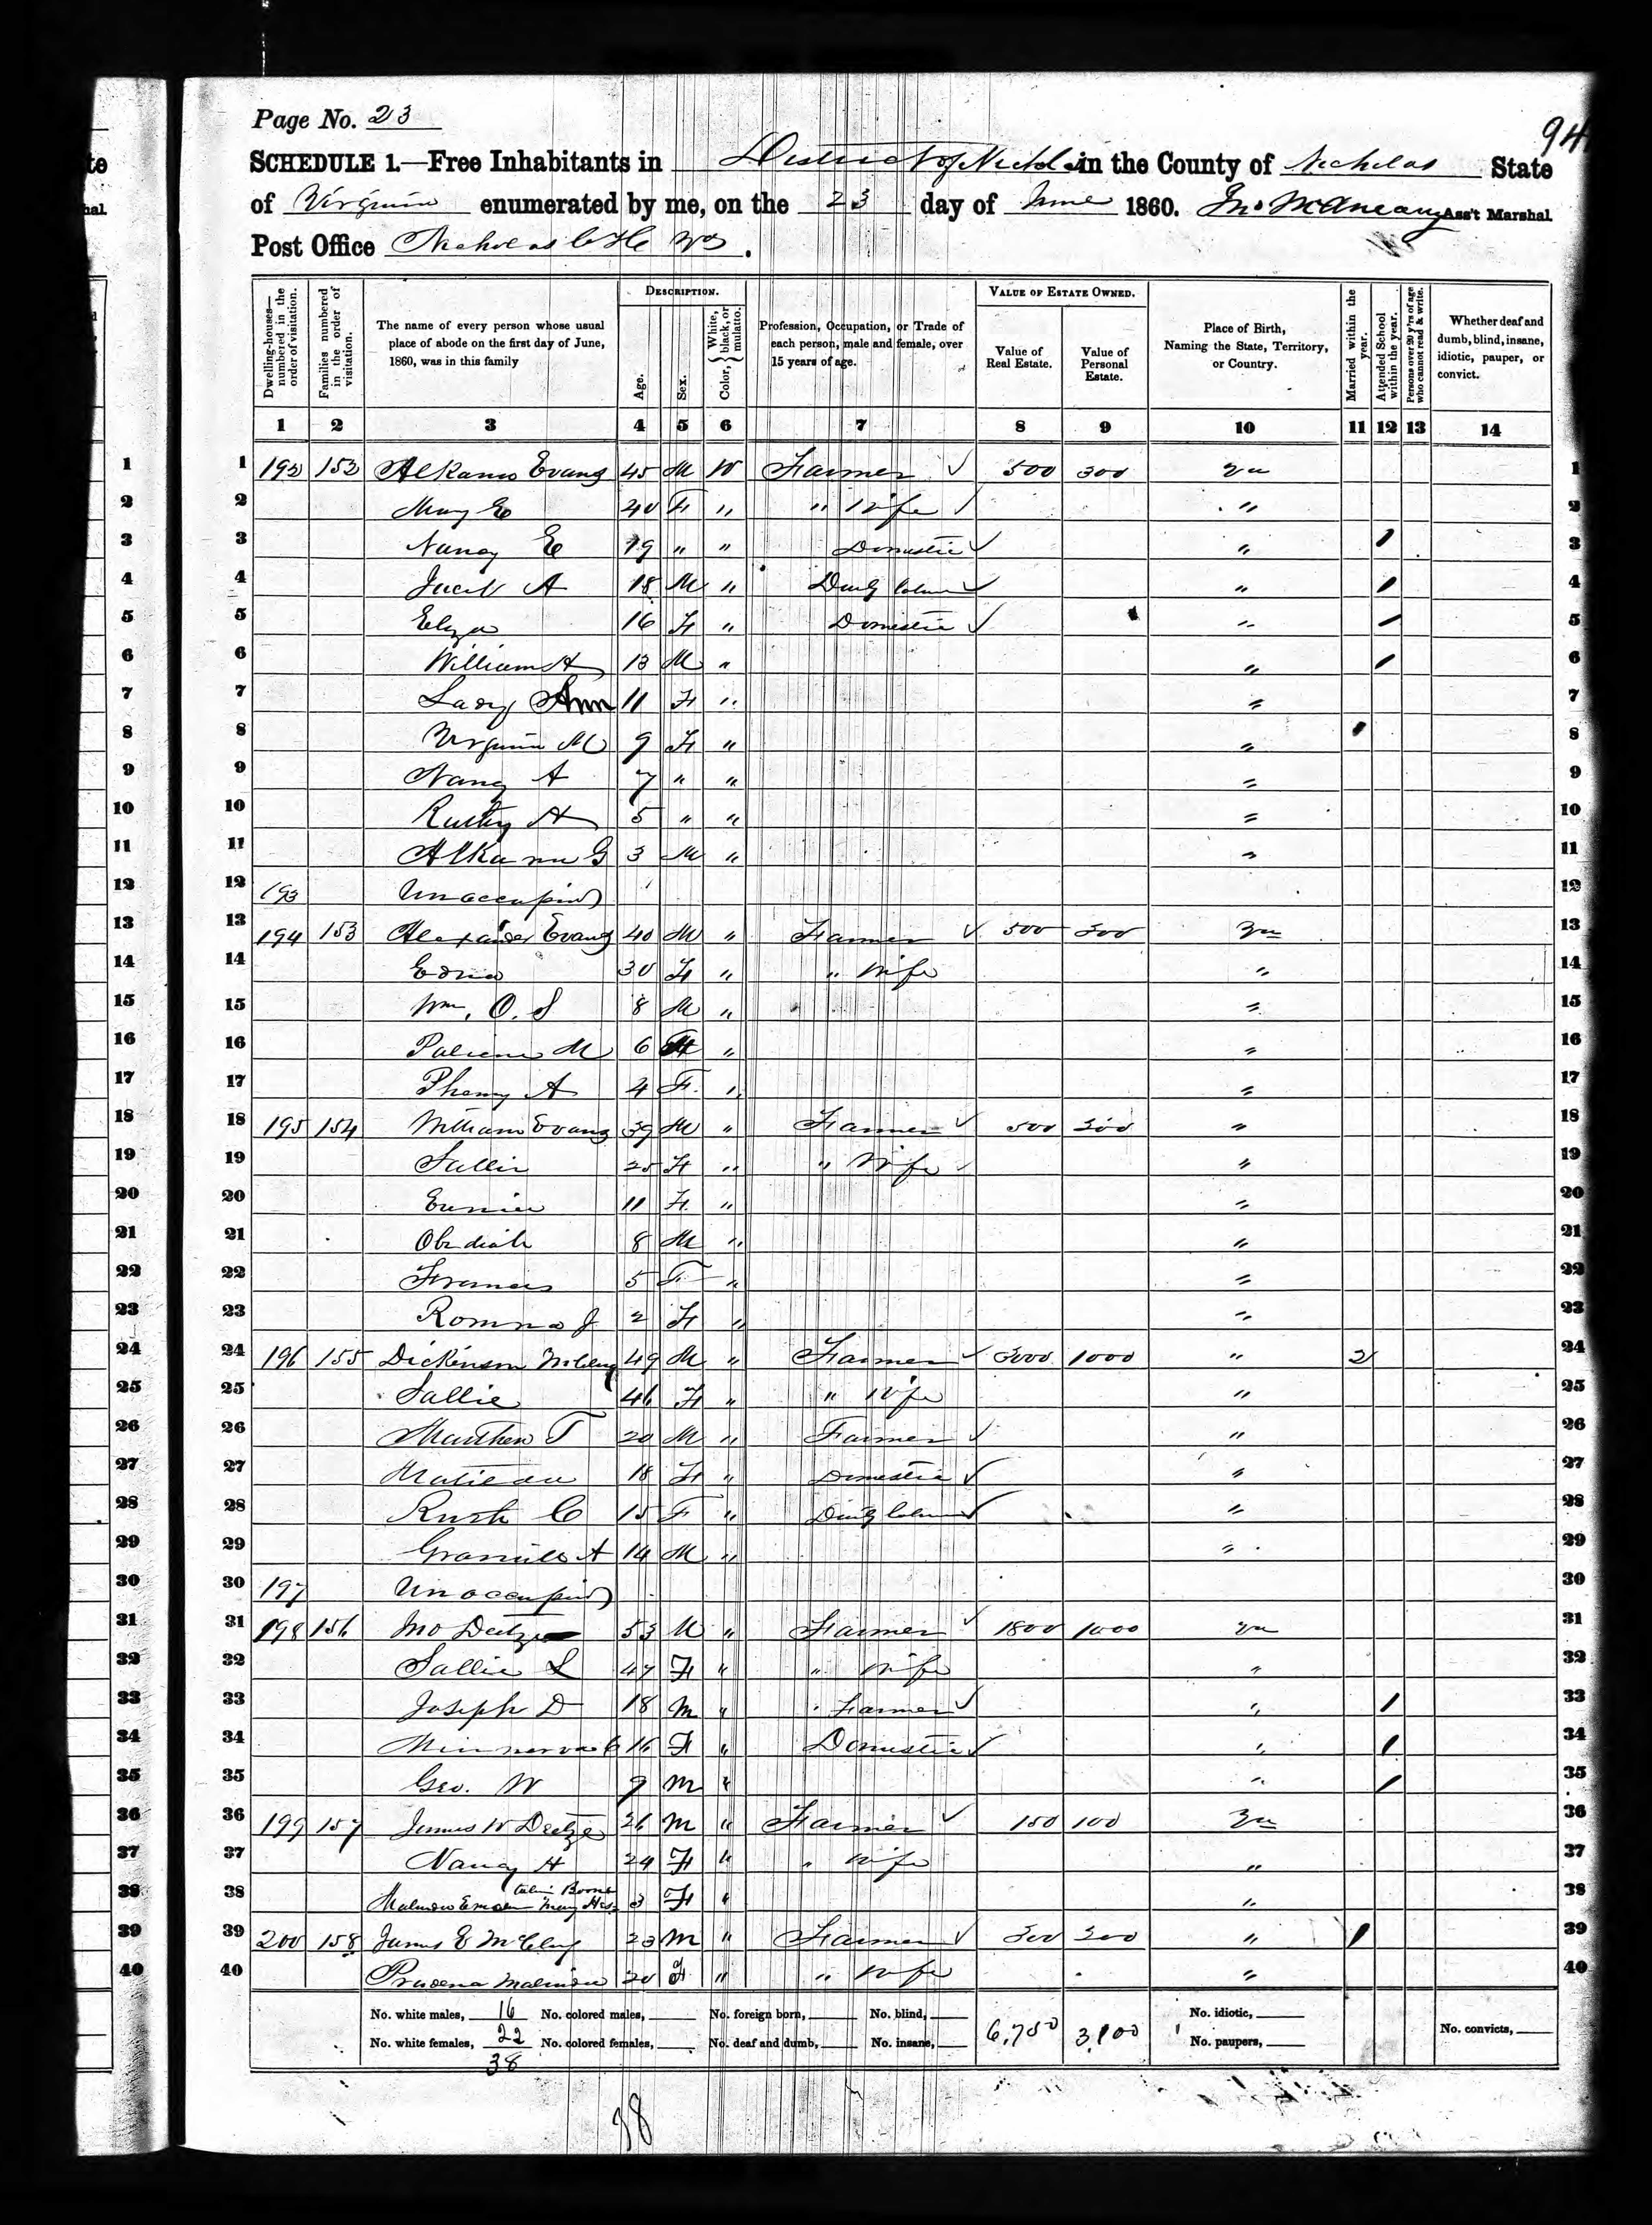 94
Page No. 23
SCHEDULE 1.—Free Inhabitants in District of Nichols in the County of Nicholas State
of Virginia enumerated by me, on the 23 day of June 1860. Jno McAneany Ass't Marshal.
Post Office Nicholas C H Va.
DESCRIPTION. VALUE OF ESTATE OWNED.
Dwelling-houses—numbered in the order of visitation. Families numbered in the order of visitation. The name of every person whose usual place of abode on the first day of June, 1860, was in this family Age. Sex. Color, { White, black, or mulatto. Profession, Occupation, or Trade of each person, male and female, over 15 years of age. Value of Real Estate. Value of Personal Estate. Place of Birth, Naming the State, Territory, or Country. Married within the year. Attended School within the year. Persons over 20 y'rs of age who cannot read & write. Whether deaf and dumb, blind, insane, idiotic, pauper, or convict.
1 2 3 4 5 6 7 8 9 10 11 12 13 14
1 192 152 Evans 45 M W Farmer ✓ 500 300 Va 1
2 Mary E 40 F " " Wife ✓ " 2
3 Nancy E 19 " " Domestic ✓ " / 3
4 Jacob A 18 M " ✓ " / 4
5 Eliza 16 F " Domestic ✓ " / 5
6 William A 13 M " " / 6
7 Ann 11 F " " 7
8 Virginia M 9 F " " / 8
9 Nancy A 7 " " " 9
10 A 5 " " " 10
11 G 3 M " " 11
12 193 Unoccupied 12
13 194 153 Alexander Evans 40 M " Farmer ✓ 500 300 Va 13
14 Edna 30 F " " Wife " 14
15 Wm. O. S 8 M " " 15
16 M 6 F " " 16
17 Pheny A 4 F " " 17
18 195 154 William Evans 39 M " Farmer ✓ 500 300 " 18
19 Sallie 25 F " " Wife ✓ " 19
20 Eunice 11 F " " 20
21 Obediah 8 M " " 21
22 Frances 5 F " " 22
23 J 2 F " " 23
24 196 155 Dickinson McClung 49 M " Farmer ✓ 3000 1000 " 2 24
25 Sallie 46 F " " Wife " 25
26 Matthew T 20 M " Farmer ✓ " 26
27 18 F " Domestic ✓ " 27
28 C 15 F " ✓ " 28
29 Granville A 14 M " " 29
30 197 Unoccupied 30
31 198 156 Jno Deitz 53 M " Farmer ✓ 1800 1000 Va 31
32 Sallie L 47 F " " Wife " 32
33 Joseph D 18 M " Farmer ✓ " / 33
34 Minnerva C 16 F " Domestic ✓ " / 34
35 Geo. W 9 M " " / 35
36 199 157 James W Deitz 26 M " Farmer ✓ 150 100 Va 36
37 Nancy H 24 F " " Wife " 37
38 3 F " " 38
39 200 158 James E McClung 23 M " Farmer ✓ 300 200 " / 39
40 20 F " " Wife " 40
No. white males, 16 No. colored males, No. foreign born, No. blind, 6,750 3,100 No. idiotic,
No. white females, 22 No. colored females, No. deaf and dumb, No. insane, No. paupers, No. convicts,
38
38